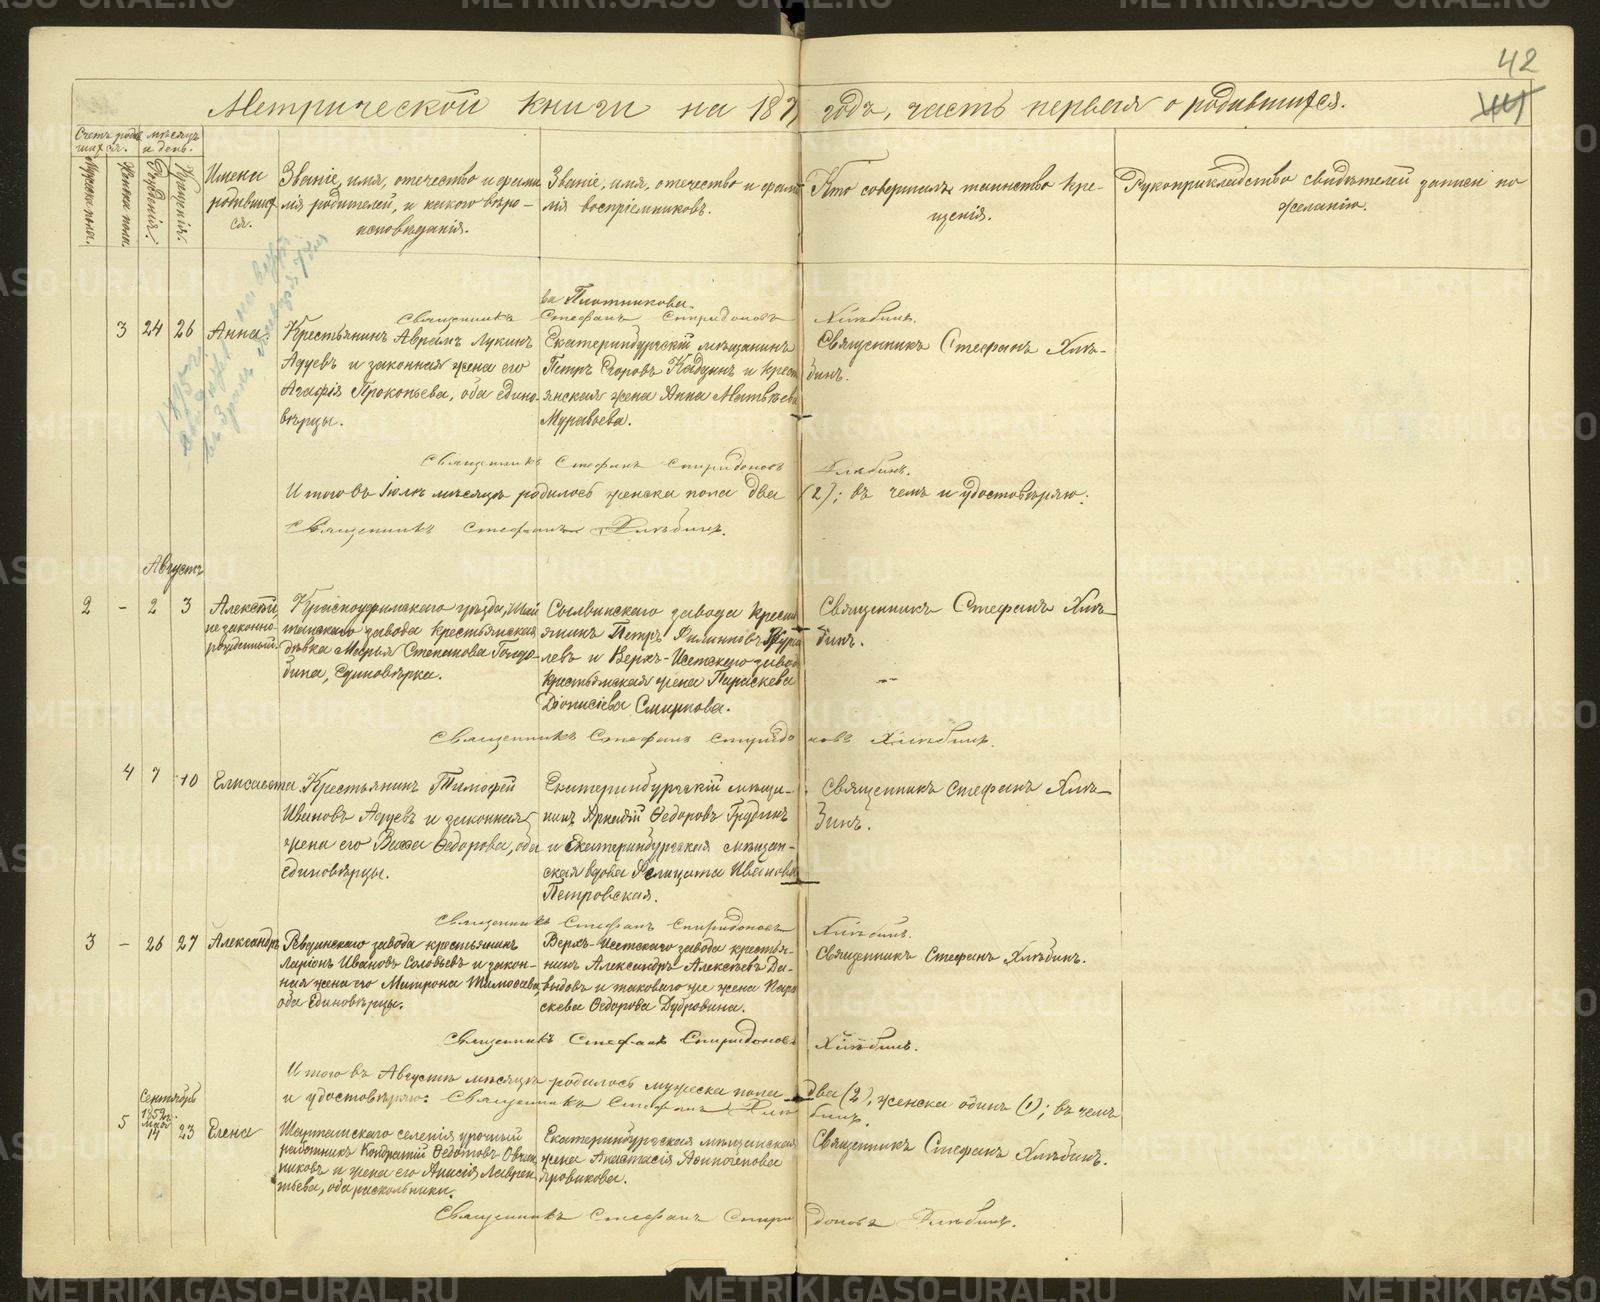 42
Метрической книги на 187 годъ, часть первая о родившихся.
Счетъ родив
шихся.
мѣсяцъ
и день.
Мужска пола.
Женска пола
Рожденія.
Крещенія.
Имена
родивших
ся.
Званіе, имя, отечество и фами
лія родителей, и какого вѣро-
исповѣданія.
Званіе, имя, отечество и фами
лія воспріемниковъ.
Кто совершалъ таинство кре-
щенія.
Рукоприкладство свидѣтелей записи по
желанію.
ва Плотникова.
Священникъ Стефанъ Спиридоновъ Хлѣбинъ.
3 24 26 Анна.
Крестьянинъ Авраамъ Лукинъ
Адуевъ и законная жена его
Агафія Прокопьева, оба едино-
вѣрцы.
Екатеринбургскій мѣщанинъ
Петръ Егоровъ и крест
янская жена Анна Матвѣева
Муравьева.
Священникъ Стефанъ Хлѣ-
бинъ.
Священникъ Стефанъ Спиридоновъ Хлѣбинъ.
Итого въ Іюлѣ мѣсяцѣ родилось женска пола два (2); въ чемъ и удостовѣряю:
Священникъ Стефанъ Хлѣбинъ.
Августъ
2 - 2 3 Алексѣй
незаконно-
рожденный.
Красноуфимскаго уѣзда, Шай
танскаго завода крестьянская
дѣвка Марья Степанова
бина, Единовѣрка.
Сылвинскаго завода крест
янинъ Петръ Филиповъ
левъ и Верхъ-Исетскаго завода
крестьянская жена Параскева
Діонисіева Смирнова.
Священникъ Стефанъ Хлѣ-
бинъ.
Священникъ Стефанъ Спиридоновъ Хлѣбинъ.
4 7 10 Елисавета.
Крестьянинъ Тимофей
Ивановъ Адуевъ и законная
жена его Васса Ѳедорова, оба
единовѣрцы.
Екатеринбургскій мѣща-
нинъ Аркадій Ѳедоровъ Грудинъ
и Екатеринбургская мѣщан-
ская вдова Фелицата Иванова
Петровская.
Священникъ Стефанъ Хлѣ-
бинъ.
Священникъ Стефанъ Спиридоновъ Хлѣбинъ.
3 - 26 27 Александръ
Ревдинскаго завода крестьянинъ
Ларіонъ Ивановъ Соловьевъ и закон-
ная жена его Матрона Тимофѣева,
оба Единовѣрцы.
Верхъ-Исетскаго завода крестья-
нинъ Александръ Алексѣевъ Да-
выдовъ и таковаго же жена Пара
скева Ѳедорова Дубровина.
Священникъ Стефанъ Хлѣбинъ.
Священникъ Стефанъ Спиридоновъ Хлѣбинъ.
Итого въ Августѣ мѣсяцѣ родилось мужеска пола два (2), женска одинъ (1); въ чемъ
и удостовѣряю: Священникъ Стефанъ Хлѣбинъ.
Сентябрь
1859
Мая
5 14 23 Елена
Шарташскаго селенія урочный
работникъ Кондратій Ѳедотовъ Овчин
никовъ и жена его Анисія Лаврен
тьева, оба раскольники.
Екатеринбургская мѣщанская
жена Анастасія Афиногенова
Яровикова.
Священникъ Стефанъ Хлѣбинъ.
Священникъ Стефанъ Спиридоновъ Хлѣбинъ.
METRIKI.GASO-URAL.RU